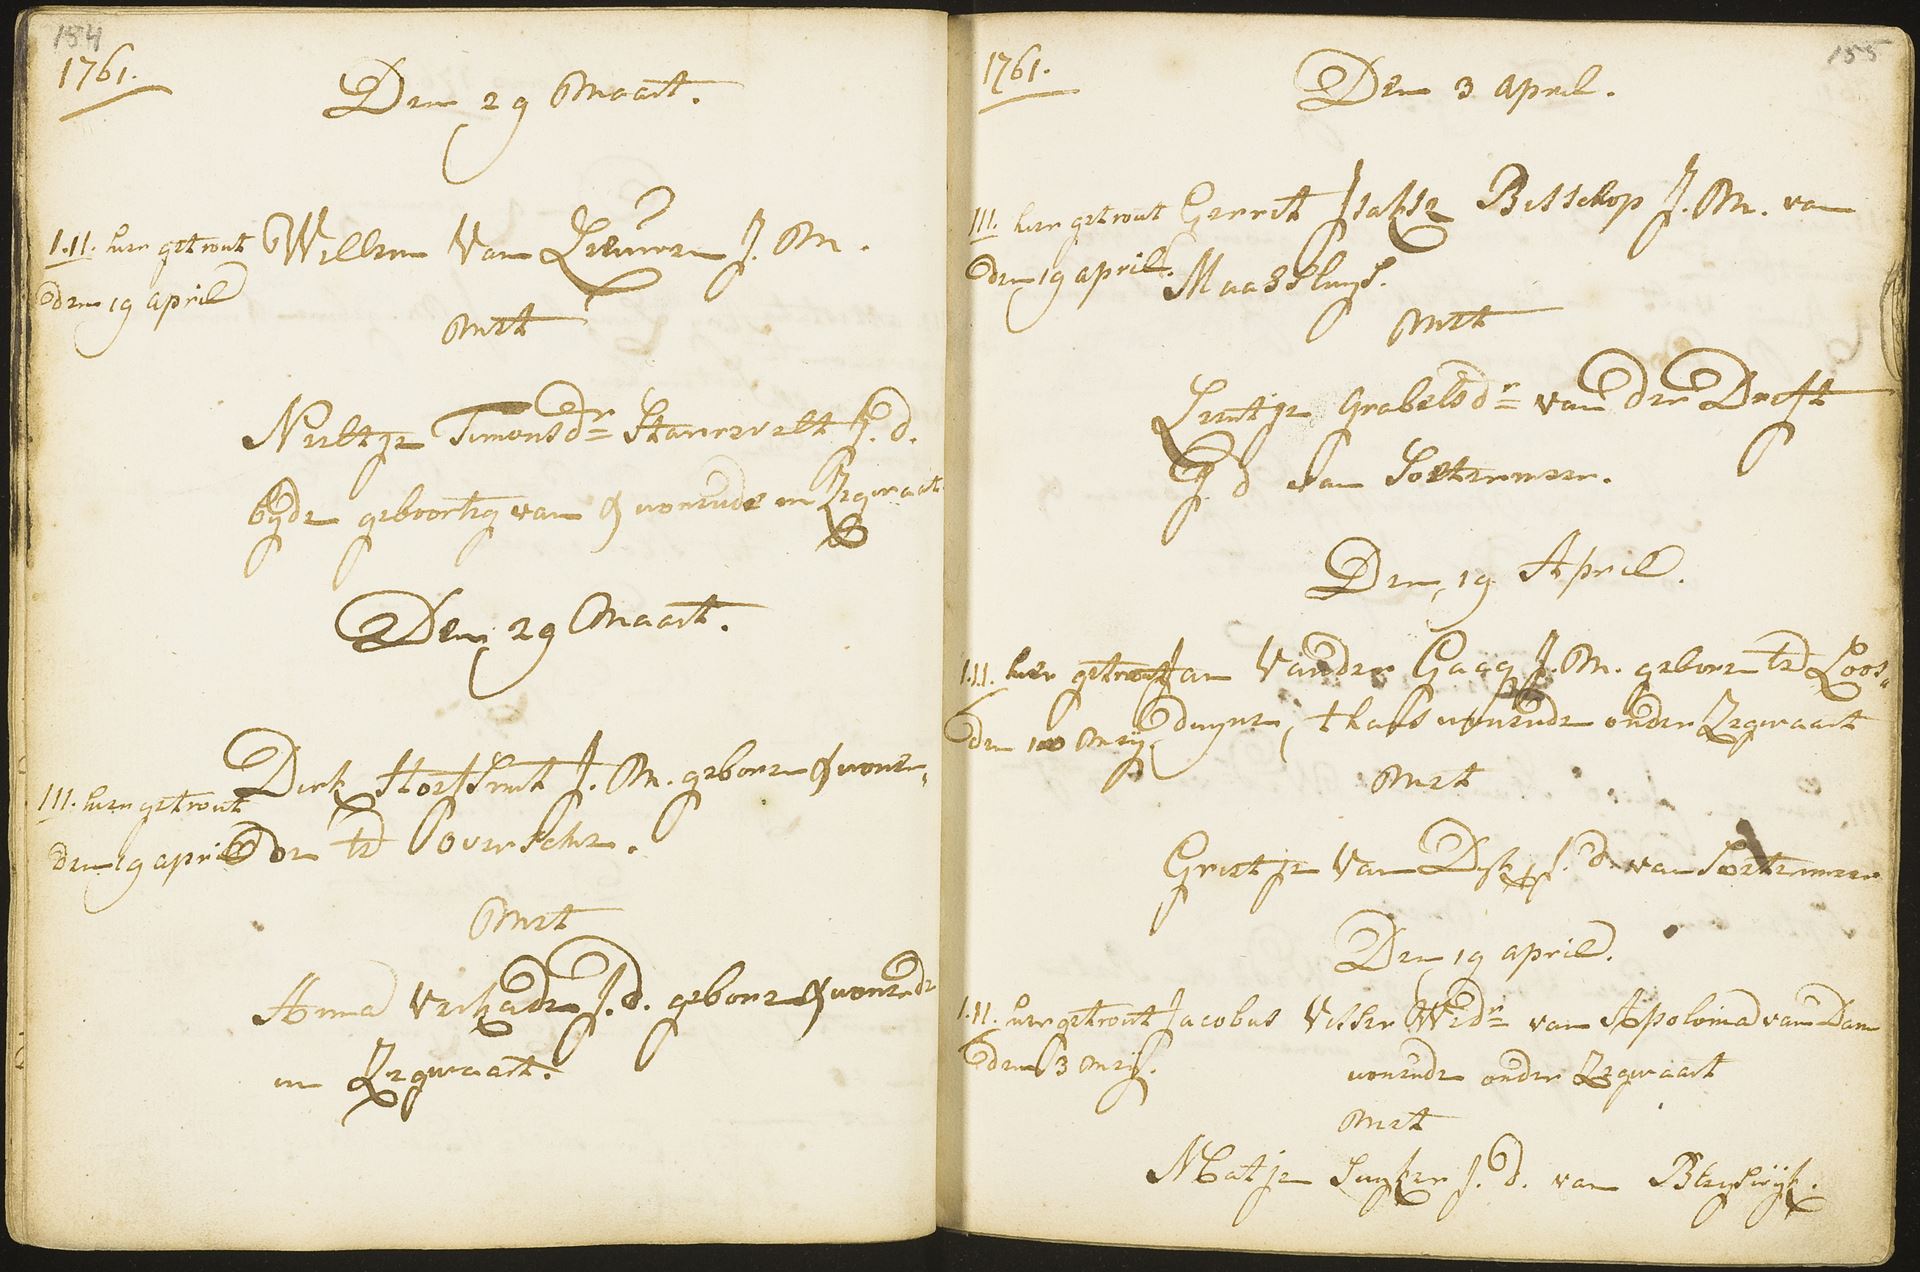 154
1761.
Den 29 Maart.
I.II. hier getrout Willem Van Leeuwen J. M.
den 19 april
Met
Neeltje Timonsdr Starrevelt J. d.
byde geboortig van & wonende in Zegwaart
Den 29 Maart.
Dirk Hoefsmit J. M. gebore & wonen
III. hier getrout
den 19 april de te Overschie.
Met
Anna Verkade J. d. gebore & wonende
in Zegwaart.
155
1761.
Den 3 april.
III. hier getrout Gerrit Isakse Bisschop J. M. van
den 19 april. Maassluys.
Met
Leentje Grabelsdr van der Drift
J. d van Soetermeer.
Den 19 April.
I.II. hier getrout Jan Vander Gaag J. M. geboren te Loos„
den 10 Meij duyne, thans wonende onder Zegwaart
Met
Grietje Van Dyk J. d. van Soetermeer
Den 19 april.
I.II. hier getrout Jacobus Visser Wedr van Apolonia van Dam
den 3 Meij. wonende onder Zegwaart
Met
Matje Suyker J. d. van Bleyswijk.